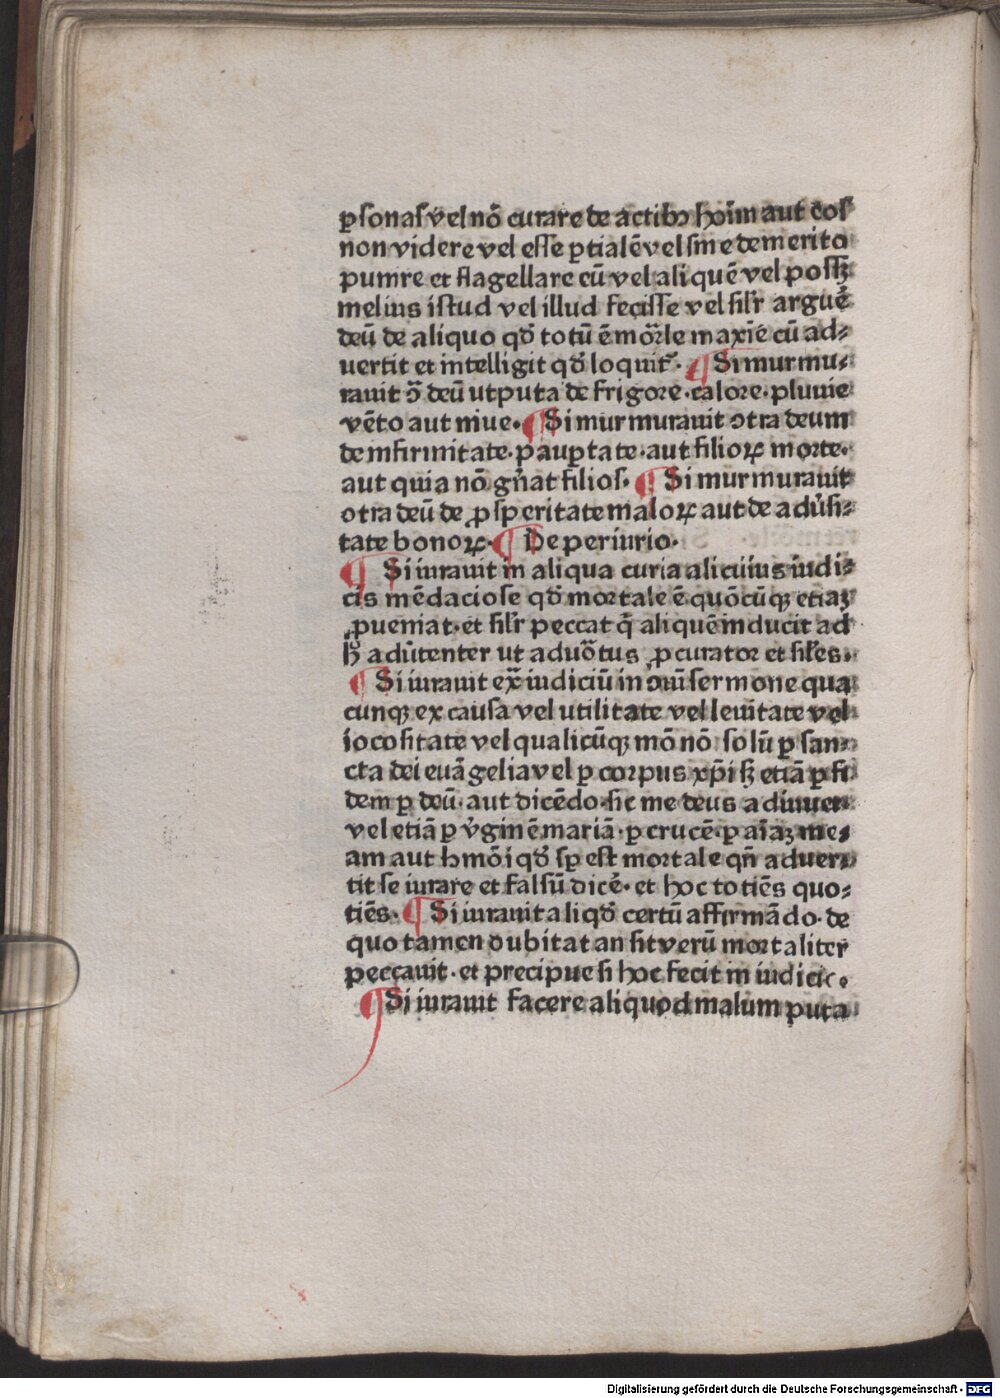 ꝑsonas vel nō curare de actibꝰ hoīm aut eos
non videre vel esse ꝑtialē vel sine demerito
punire et flagellare eū vel aliquē vel possꝫ
melius istud vel illud fecisse vel silr̄ arguē
deū de aliquo qđ totū ē mōr̄le maxīe cū ad⸗
uertit et intelligit qđ loquit᷑. ¶ Si murmu⸗
rauit ɔ̄ deū utputa de frigore.calore.pluuie
vēto aut niue. ¶ Si murmurauit ɔtra deum
de infirmitate.pauꝑtate.aut filioꝝ morte.
aut quia nō gn̄at filios. ¶ Si murmurauit
ɔtra deū de ꝓsperitate maloꝝ aut de adu̓si⸗
tate bonoꝝ. ¶ De periurio.
¶ Si iurauit in aliqua curia alicuius iudi⸗
cis mēdaciose qđ mortale ē quōcūqꝫ etiaꝫ
ꝓueniat.et silr̄ peccat q̄ aliquē inducit ad
ħ aduertenter ut aduōtus ꝓcurator et sil̄es.
¶ Si iurauit ex̄ iudiciū in oī sermone qua
cunqꝫ ex causa vel utilitate vel leuitate vel
iocositate vel qualicūqꝫ mō nō solū ꝑ san⸗
cta dei euāgelia vel ꝑ corpus xp̄i sꝫ etiā ꝑ fi
dem ꝑ deū.aut dicēdo sic me deus adiuuet
vel etiā ꝑ v̓ginē mariā.ꝑ crucē.ꝑ aīaꝫ me⸗
am aut hmōi qđ sꝑ est mortale qn̄ aduer⸗
tit se iurare et falsū dicē. et hoc totiēs quo⸗
tiēs. ¶ Si iurauit aliqđ certū affirmādo.de
quo tamen dubitat an sit verū mortaliter
peccauit.et precipue si hoc fecit in iudicio.
¶ Si iurauit facere aliquod malum puta
Digitalisierung gefördert durch die Deutsche Forschungsgemeinschaft - DFG